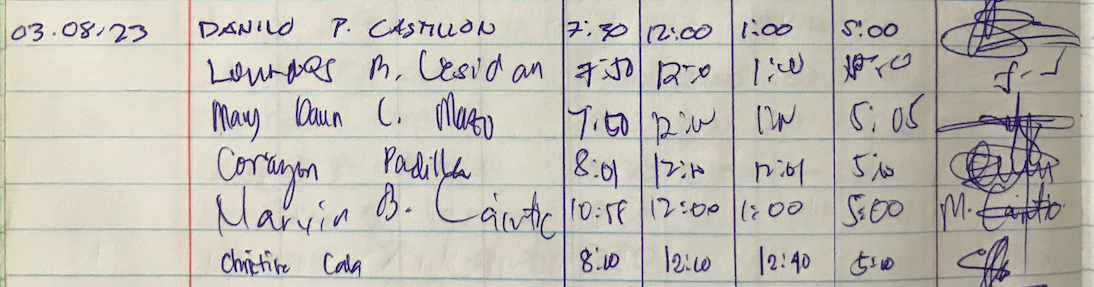 03.08.23 DANILO P. CASTILLON 7:30 12:00 1:00 5:00
Lourdes B. Cesidan 7:50 12:0 1:00
Mary Daun C. Mazo 7:50 12:00 5:05
Corazon Padilla 8:01 12:10 12:01 5:10
Marvin B. 10:58 12:00 1:00 5:00 M.
Christine Cala 8:10 12:10 12:40 5:10